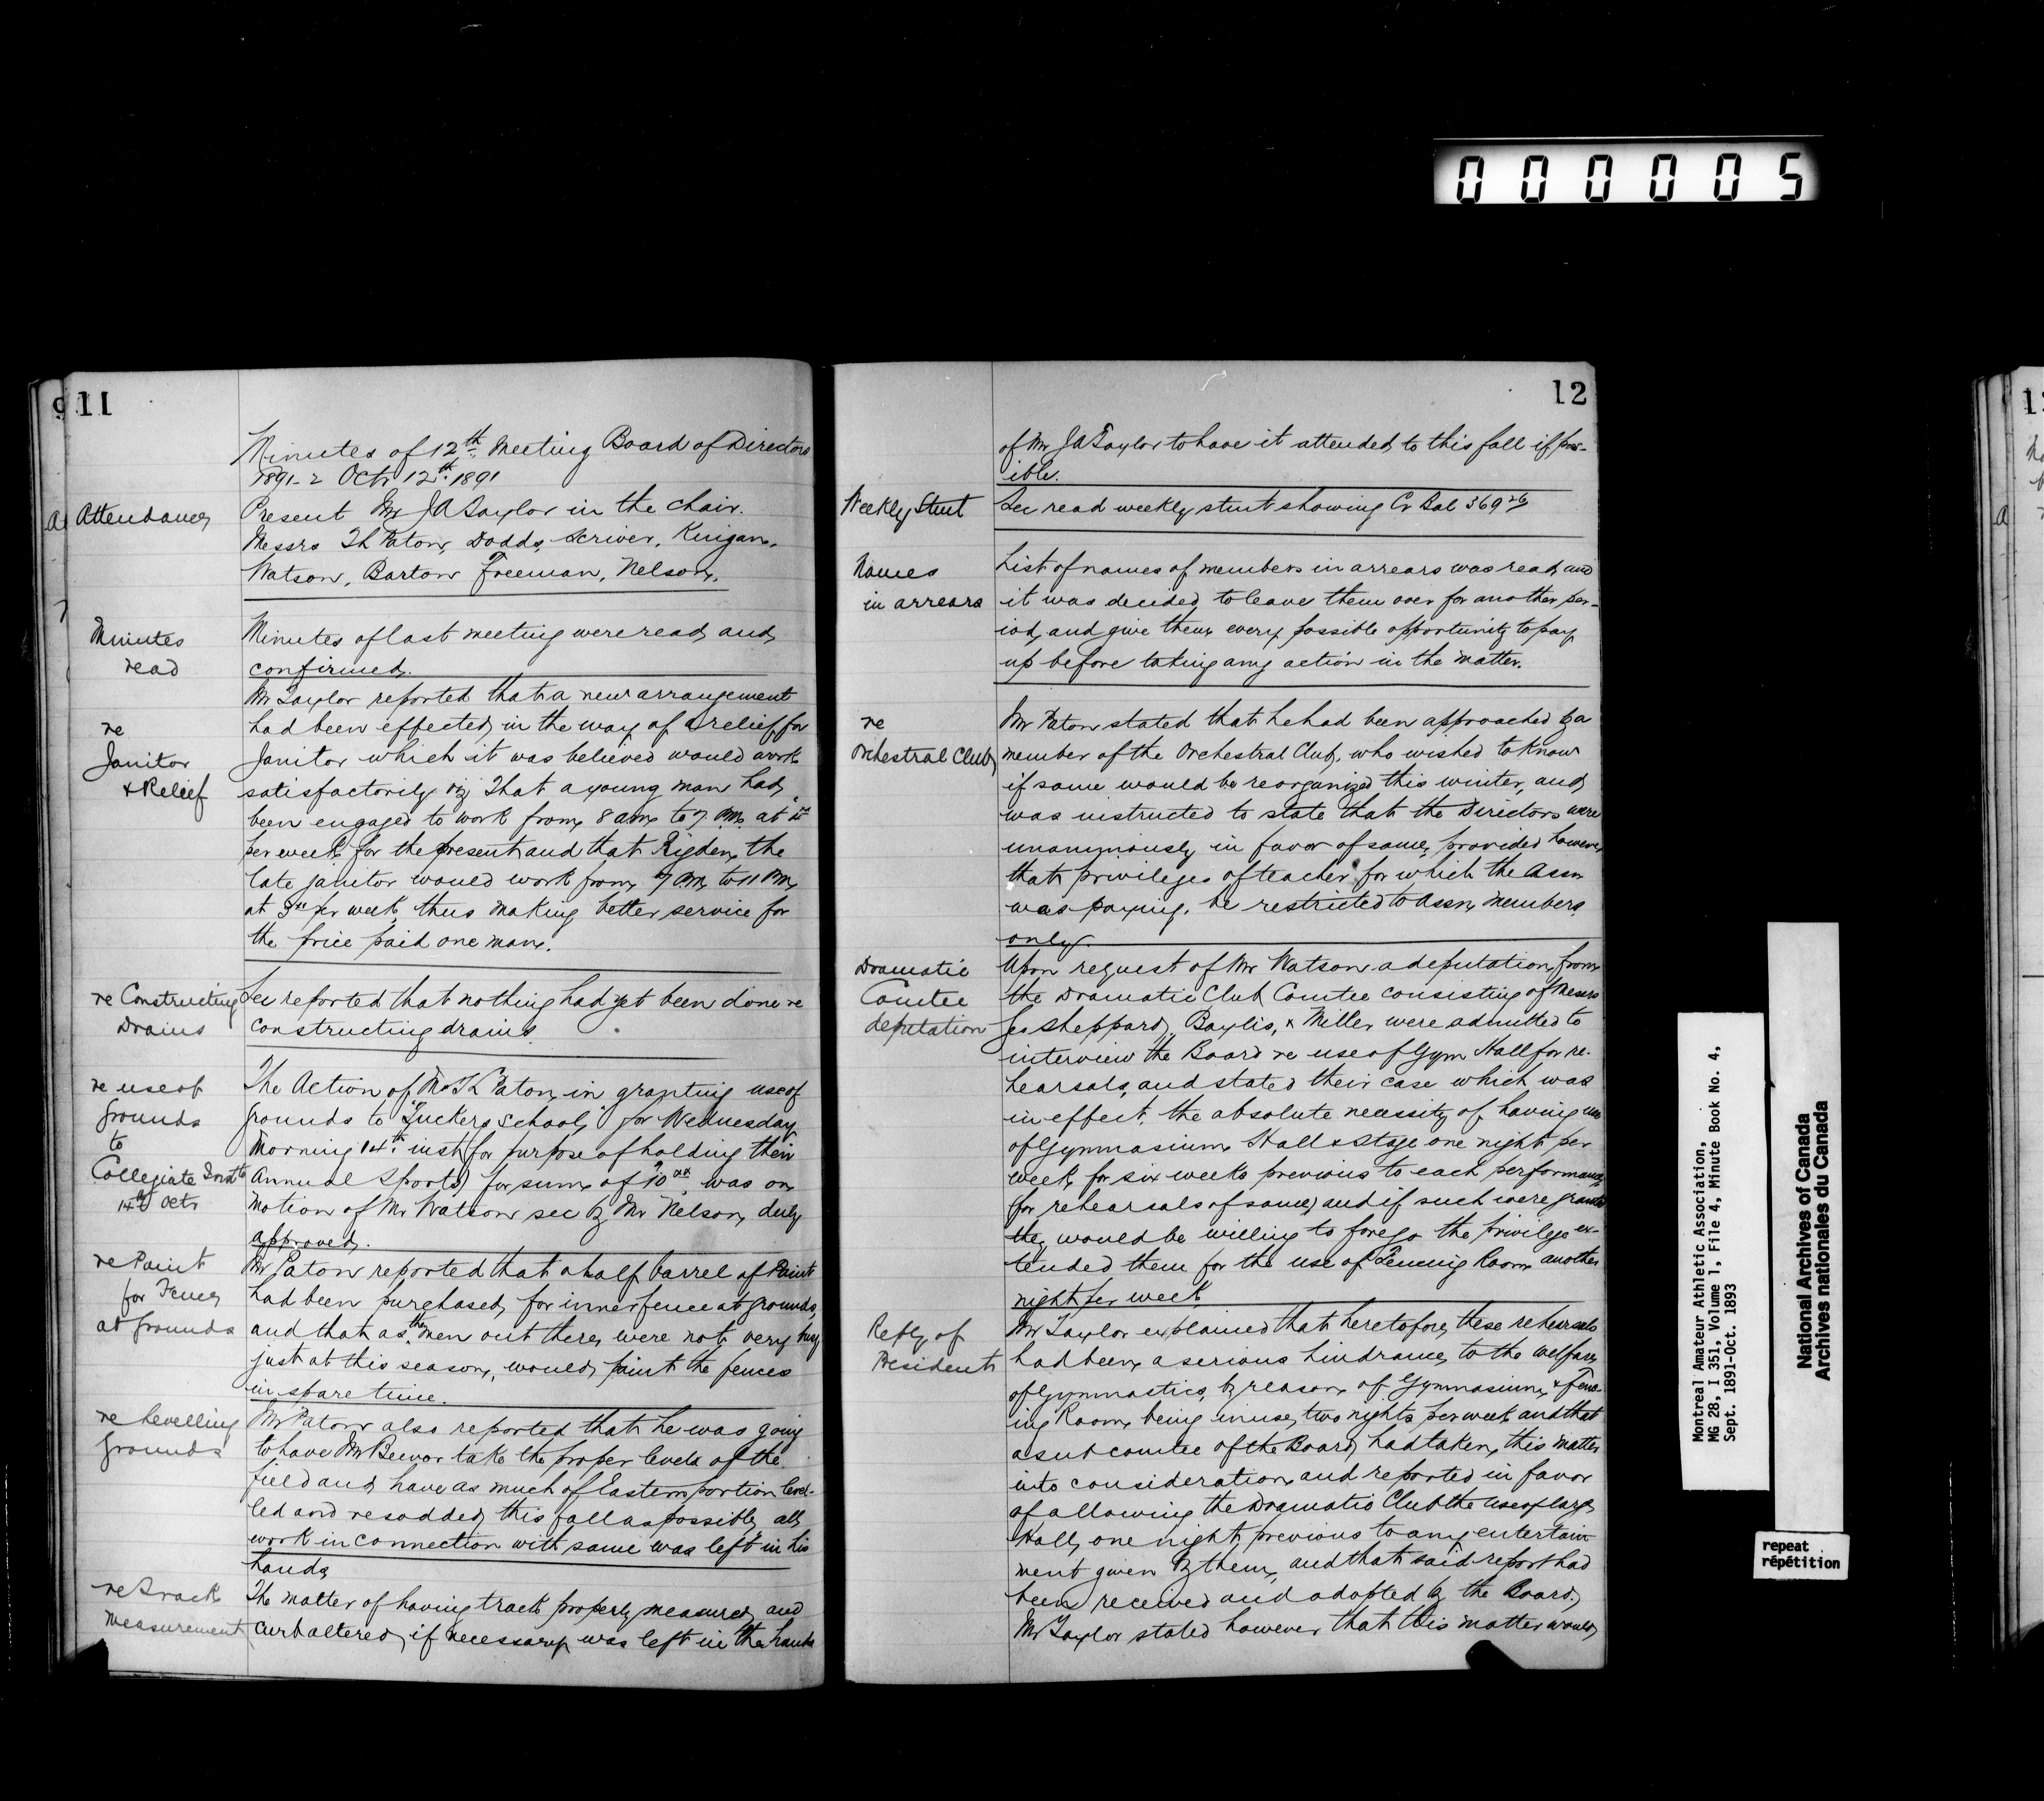 000005
9
11
Minutes of 12th Meeting Board of Directors
1891-2 Octr 12th 1891
Attendance
Present Mr JA Taylor in the chair.
Messrs TL Paton, Dodds, Scriver, Kingan,
Watson, Barton Freeman, Nelson.
Minutes
read
Minutes of last meeting were read and
confirmed.
re
Janitor
& Relief
Mr Taylor reported that a new arrangement
had been effected in the way of a relief for
Janitor which it was believed would work
satisfactorily viz That a young man had
been engaged to work from 8 am to 7 PM at
per week for the present and that Rigden the
late janitor would work from 7 PM to 11 PM
at 3 per week, thus making better service for
the price paid one man.
re Constructing
Drains
Sec reported that nothing had yet been done re
constructing drains.
re use of
Grounds
to
Collegiate Instte
14th Octr
The Action of Mr TL Paton in granting use of
grounds to "Tuckers School" for Wednesday
Morning 14th inst (for purpose of holding their
Annual Sports) for sum of 10xx was on
motion of Mr Watson sec by Mr Nelson, duly
approved.
re Paint
for Fences
at Grounds
Mr Paton reported that a half barrel of Paint
had been purchased for inner fence at grounds,
and that as the men out there were not very busy
just at this season, would paint the fences
in spare time.
re Levelling
Grounds
Mr Paton also reported that he was going
to have Mr Beevor take the proper levels of the
field and have as much of Eastern portion level-
led and resodded this fall as possible, all
work in connection with same was left in his
hands
re Track
measurement
The matter of having track properly measured and
curb altered, if necessary was left in the hands
12
of Mr JA Taylor to have it attended to this fall if poss-
ible.
Weekly Stmt
Sec read weekly stmt showing Cr Bal 369 26
Names
in arrears
List of names of members in arrears was read, and
it was decided to leave them over for another per-
iod, and give them every possible opportunity to pay
up before taking any action in the matter.
re
Orchestral Club
Mr Paton stated that he had been approached by a
member of the Orchestral Club, who wished to know
if same would be reorganized this winter, and
was instructed to state that the Directors were
unanimously in favor of same, provided however
that privileges of teacher for which the Assn
was paying, be restricted to Assn members
only.
Dramatic
Comtee
deputation
Upon request of Mr Watson a deputation from
the Dramatic Club Comtee consisting of Messrs
Geo Sheppard, Baylis, & Miller were admitted to
interview the Board re use of Gym Hall for re-
hearsals, and stated their case which was
in effect, the absolute necessity of having use
of Gymnasium Hall & Stage one night per
week for six weeks previous to each performance
(for rehearsals of same) and if such were granted
they would be willing to forego the privilege ex-
tended them for the use of Fencing Room another
night per week
Reply of
President
Mr Taylor explained that heretofore these rehearsals
had been a serious hindrance to the welfare
of Gymnastics, by reason of Gymnasium & Fenc-
ing Room being in use, two nights per week and that
a sub comtee of the Board had taken this matter
into consideration and reported in favor
of allowing the Dramatic Club the use of large
Hall, one night previous to any entertain-
ment given by them, and that said report had
been received and adopted by the Board.
Mr Taylor stated however that this matter would
Montreal Amateur Athletic Association,
MG 28, I 351, Volume 1, File 4, Minute Book No. 4,
Sept. 1891-Oct. 1893
National Archives of Canada
Archives nationales du Canada
repeat
répétition